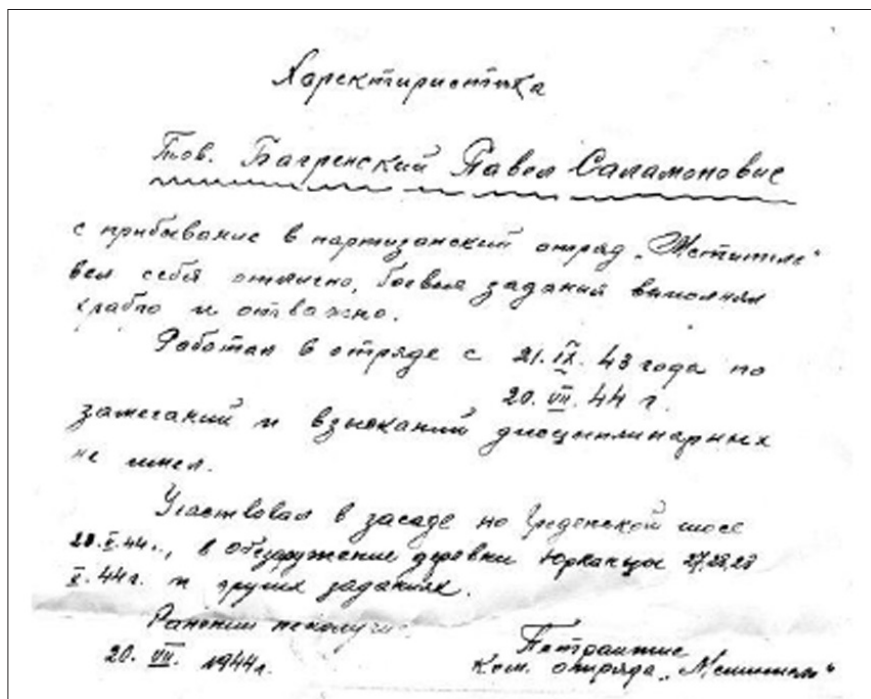 Харектиристика
Тов. Багренский Павел Саламоновис
с прибывание в партизанский отряд „Мститиль“
вел себя отлично, боевые заданий виполнял
храбро и отважно.
Работал в отряде с 21. IX. 43 года по
20. VII. 44 г.
замечаний и взысканий дисцыплинарных
не имел.
Участвовал в засаде но шосе
20. V. 44г., в обезоружение деревни 27,28,29
V. 44г. и других заданиях.
Ранении
20. VII. 1944г.
Ком. отряда „Мститель“